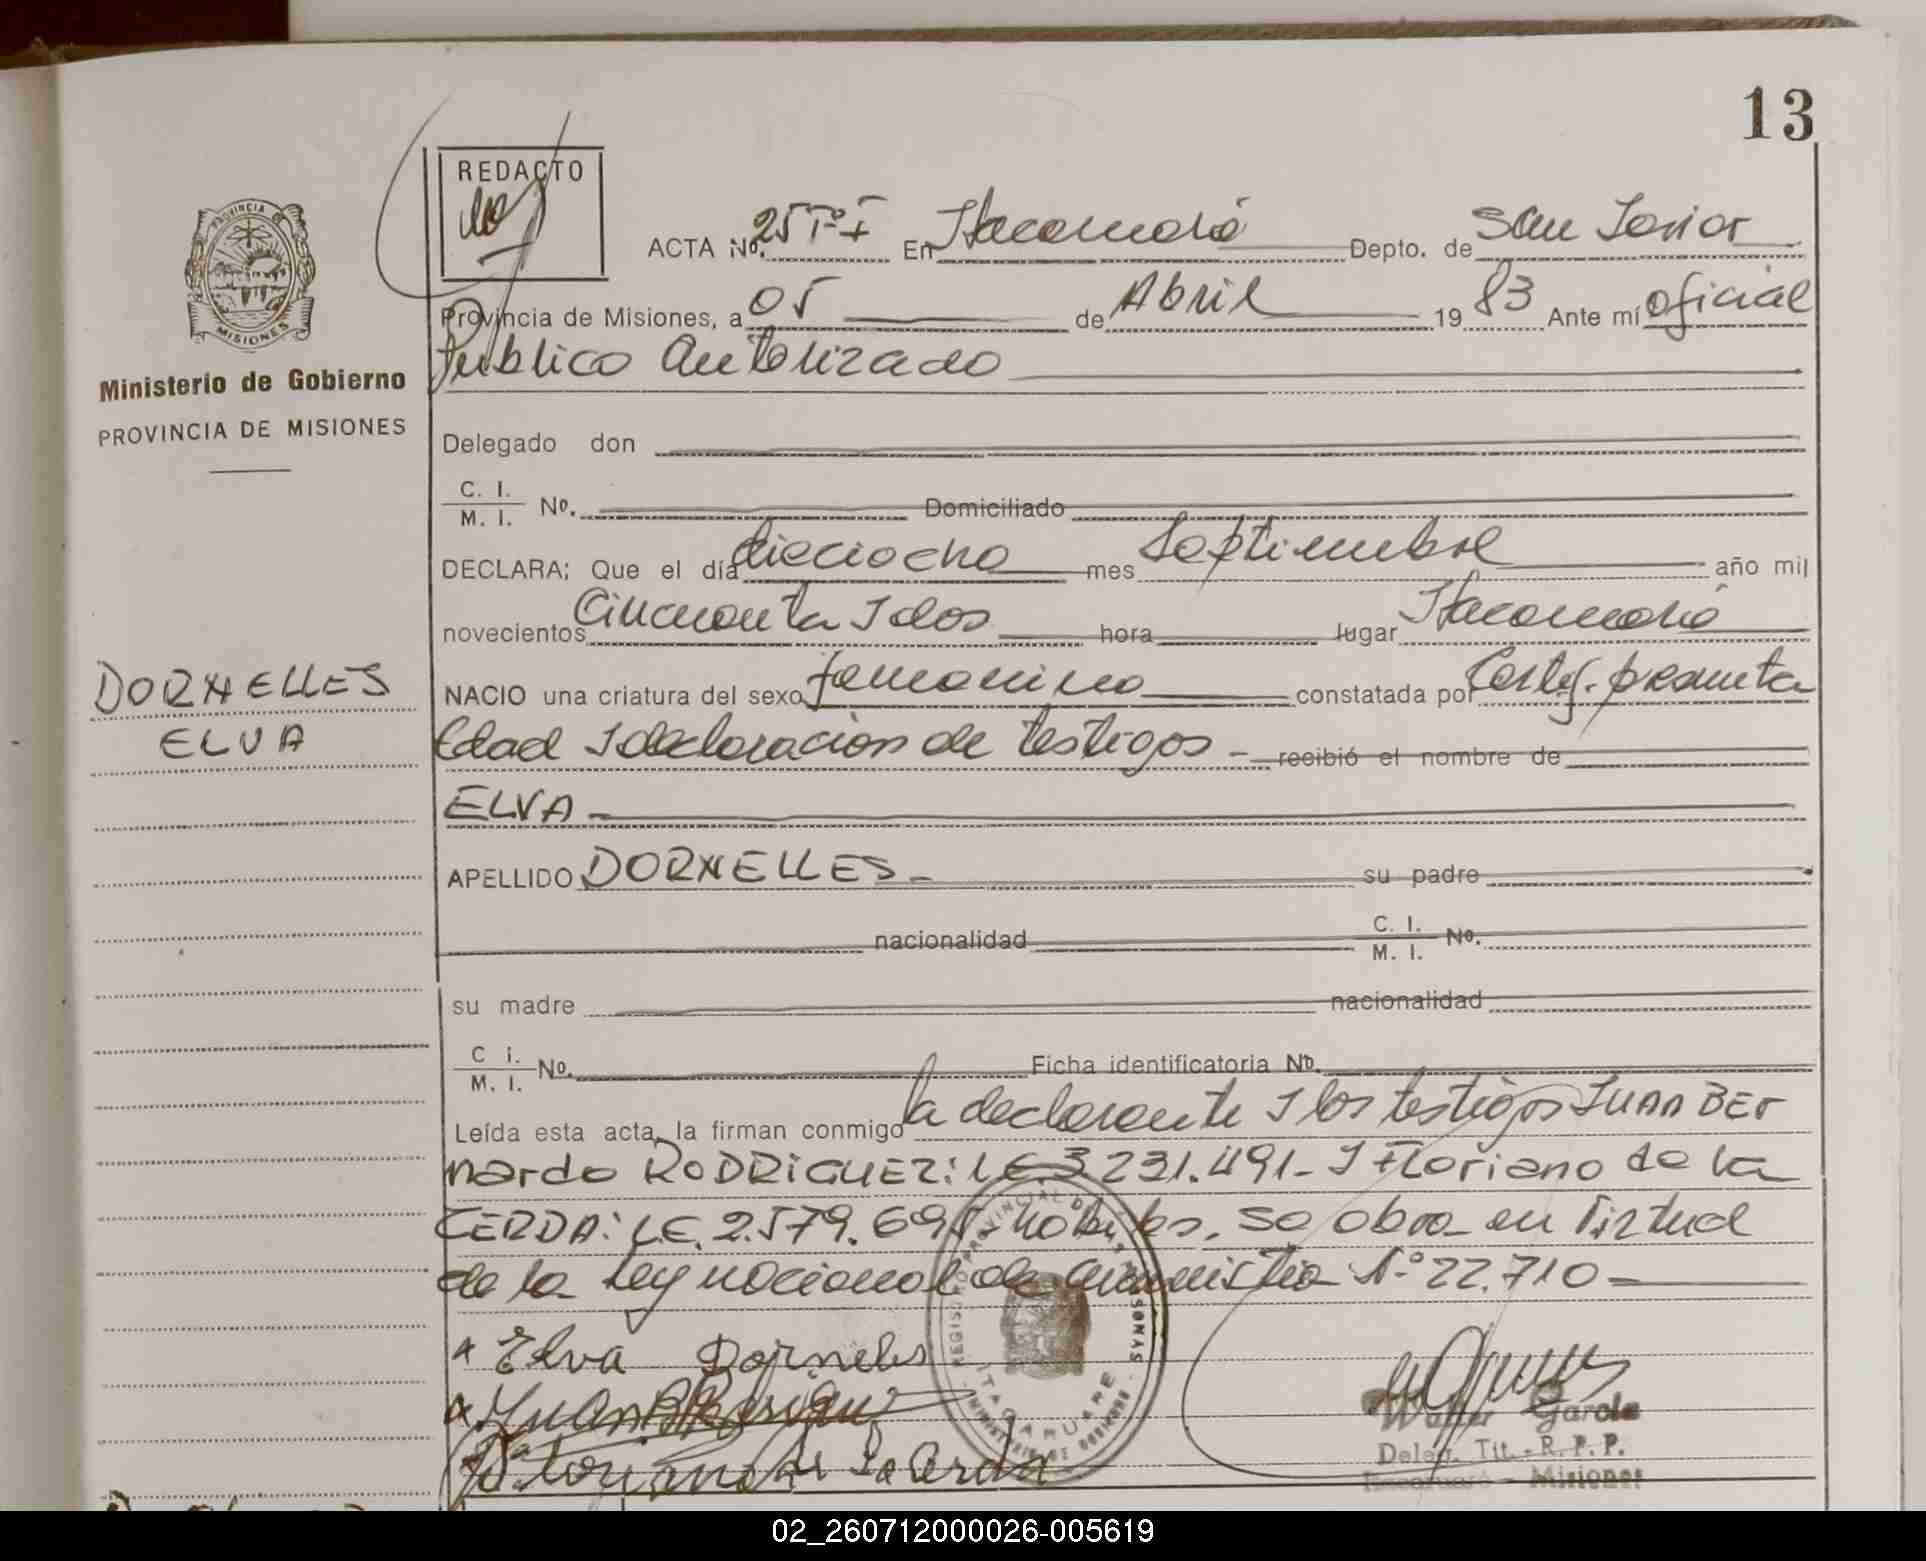 13
REDACTO
ACTA No. 25Tº I En Itacaruaré Depto. de San Javier
Provincia de Misiones, a 05 de Abril 1983 Ante mí oficial
Publico Autorizado
PROVINCIA DE
MISIONES
Ministerio de Gobierno
PROVINCIA DE MISIONES
Delegado don
C. I.
M. I. No. Domiciliado
DECLARA; Que el día dieciocho mes Septiembre año mil
novecientos Cincuenta I dos hora lugar Itacaruaré
NACIO una criatura del sexo femenino constatada por Certif. presunta
Edad I declaración de testigos - recibió el nombre de
DORNELLES
ELVA
ELVA -
APELLIDO DORNELLES - su padre
nacionalidad C. I.
M. I. No.
su madre nacionalidad
C i.
M. I. No. Ficha identificatoria No.
Leída esta acta, la firman conmigo la declarante I los testigos JUAN BER
nardo RODRIGUEZ: L.E. 3 231.491- I Floriano de la
CERDA: L.E. 2.579.695 habiles. se obra en Virtud
de la Ley nacional de amnistia N.º 22.710
Elva Dorneles
Floriano de la Cerda
REGISTRO PROVINCIAL DE LAS PERSONAS
ITACARUARE
MINISTERIO DE GOBIERNO
Walter Garcia
Deleg. Tit. - R. P. P.
Itacaruaré - Misiones
02_260712000026-005619